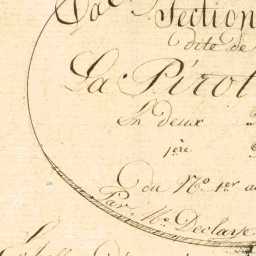 La Section
dite de
La Pirot
En deux
1ère
du No. 1er au
Par Mr. Declare